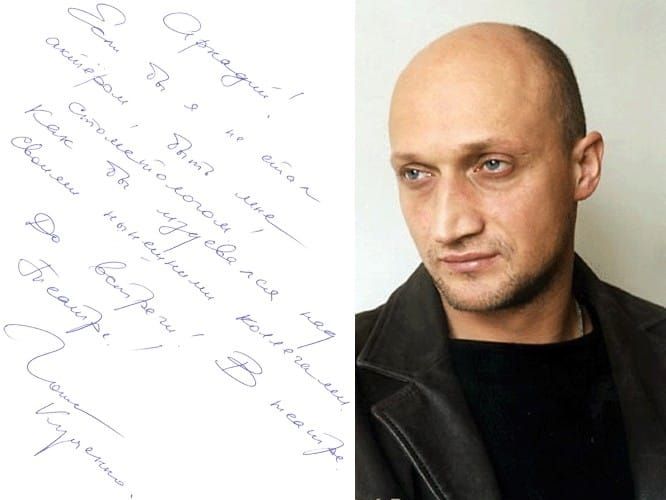 Аркадий!
Если бы я не стал
актёром быть мне
стоматологом!
Как бы издевался над
своими нынешними коллегами.
До встречи! В театре.
Театре!
Гоша
Куценко.